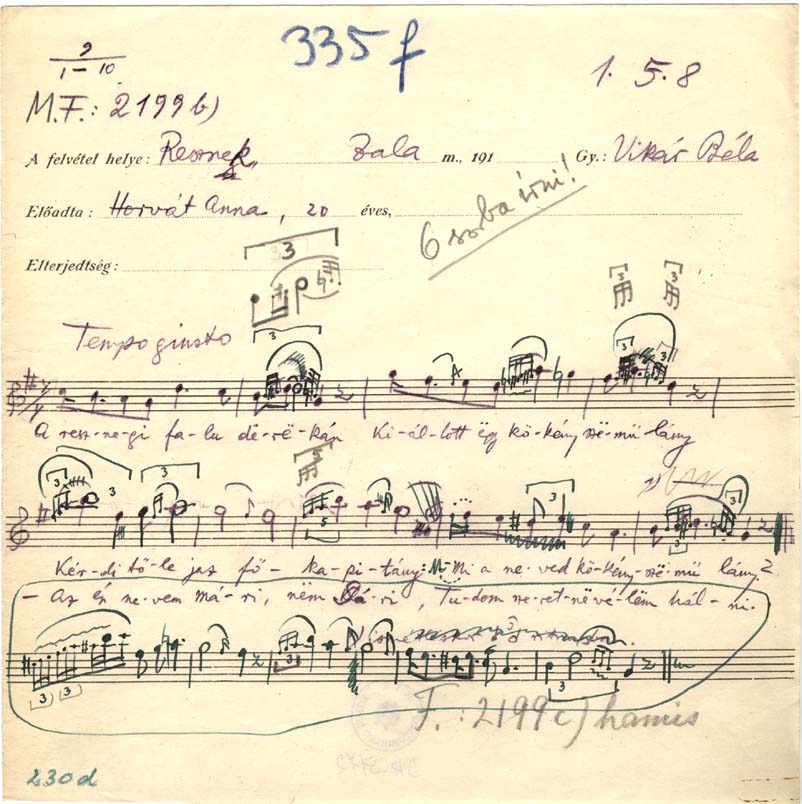 335 f
9
1-10
1. 5. 8
M.F.: 2199 b)
A felvétel helye: Resznek, Zala m., 191 Gy.: Vikár Béla
Előadta: Horvát Anna, 20 éves,
6 sorba írni!
Elterjedtség:
3
3 3
Tempo giusto
3 3 3
A resz-ne-gi fa-lu dë-rë-kán Ki-ál-lott ëgy kö-kény-szë-mű lány
3 3 3 5 5 3 3
Kér-di tő-le jaz fő- ka-pi-tány: Mi a ne-ved kö-kény-szë-mű lány?
- Az én ne-vem má-ri, nëm Sá-ri, Tu-dom sze-ret-në-vé-lëm hál-ni.
3 3 3 3
F.: 2199 c) hamis
230 d